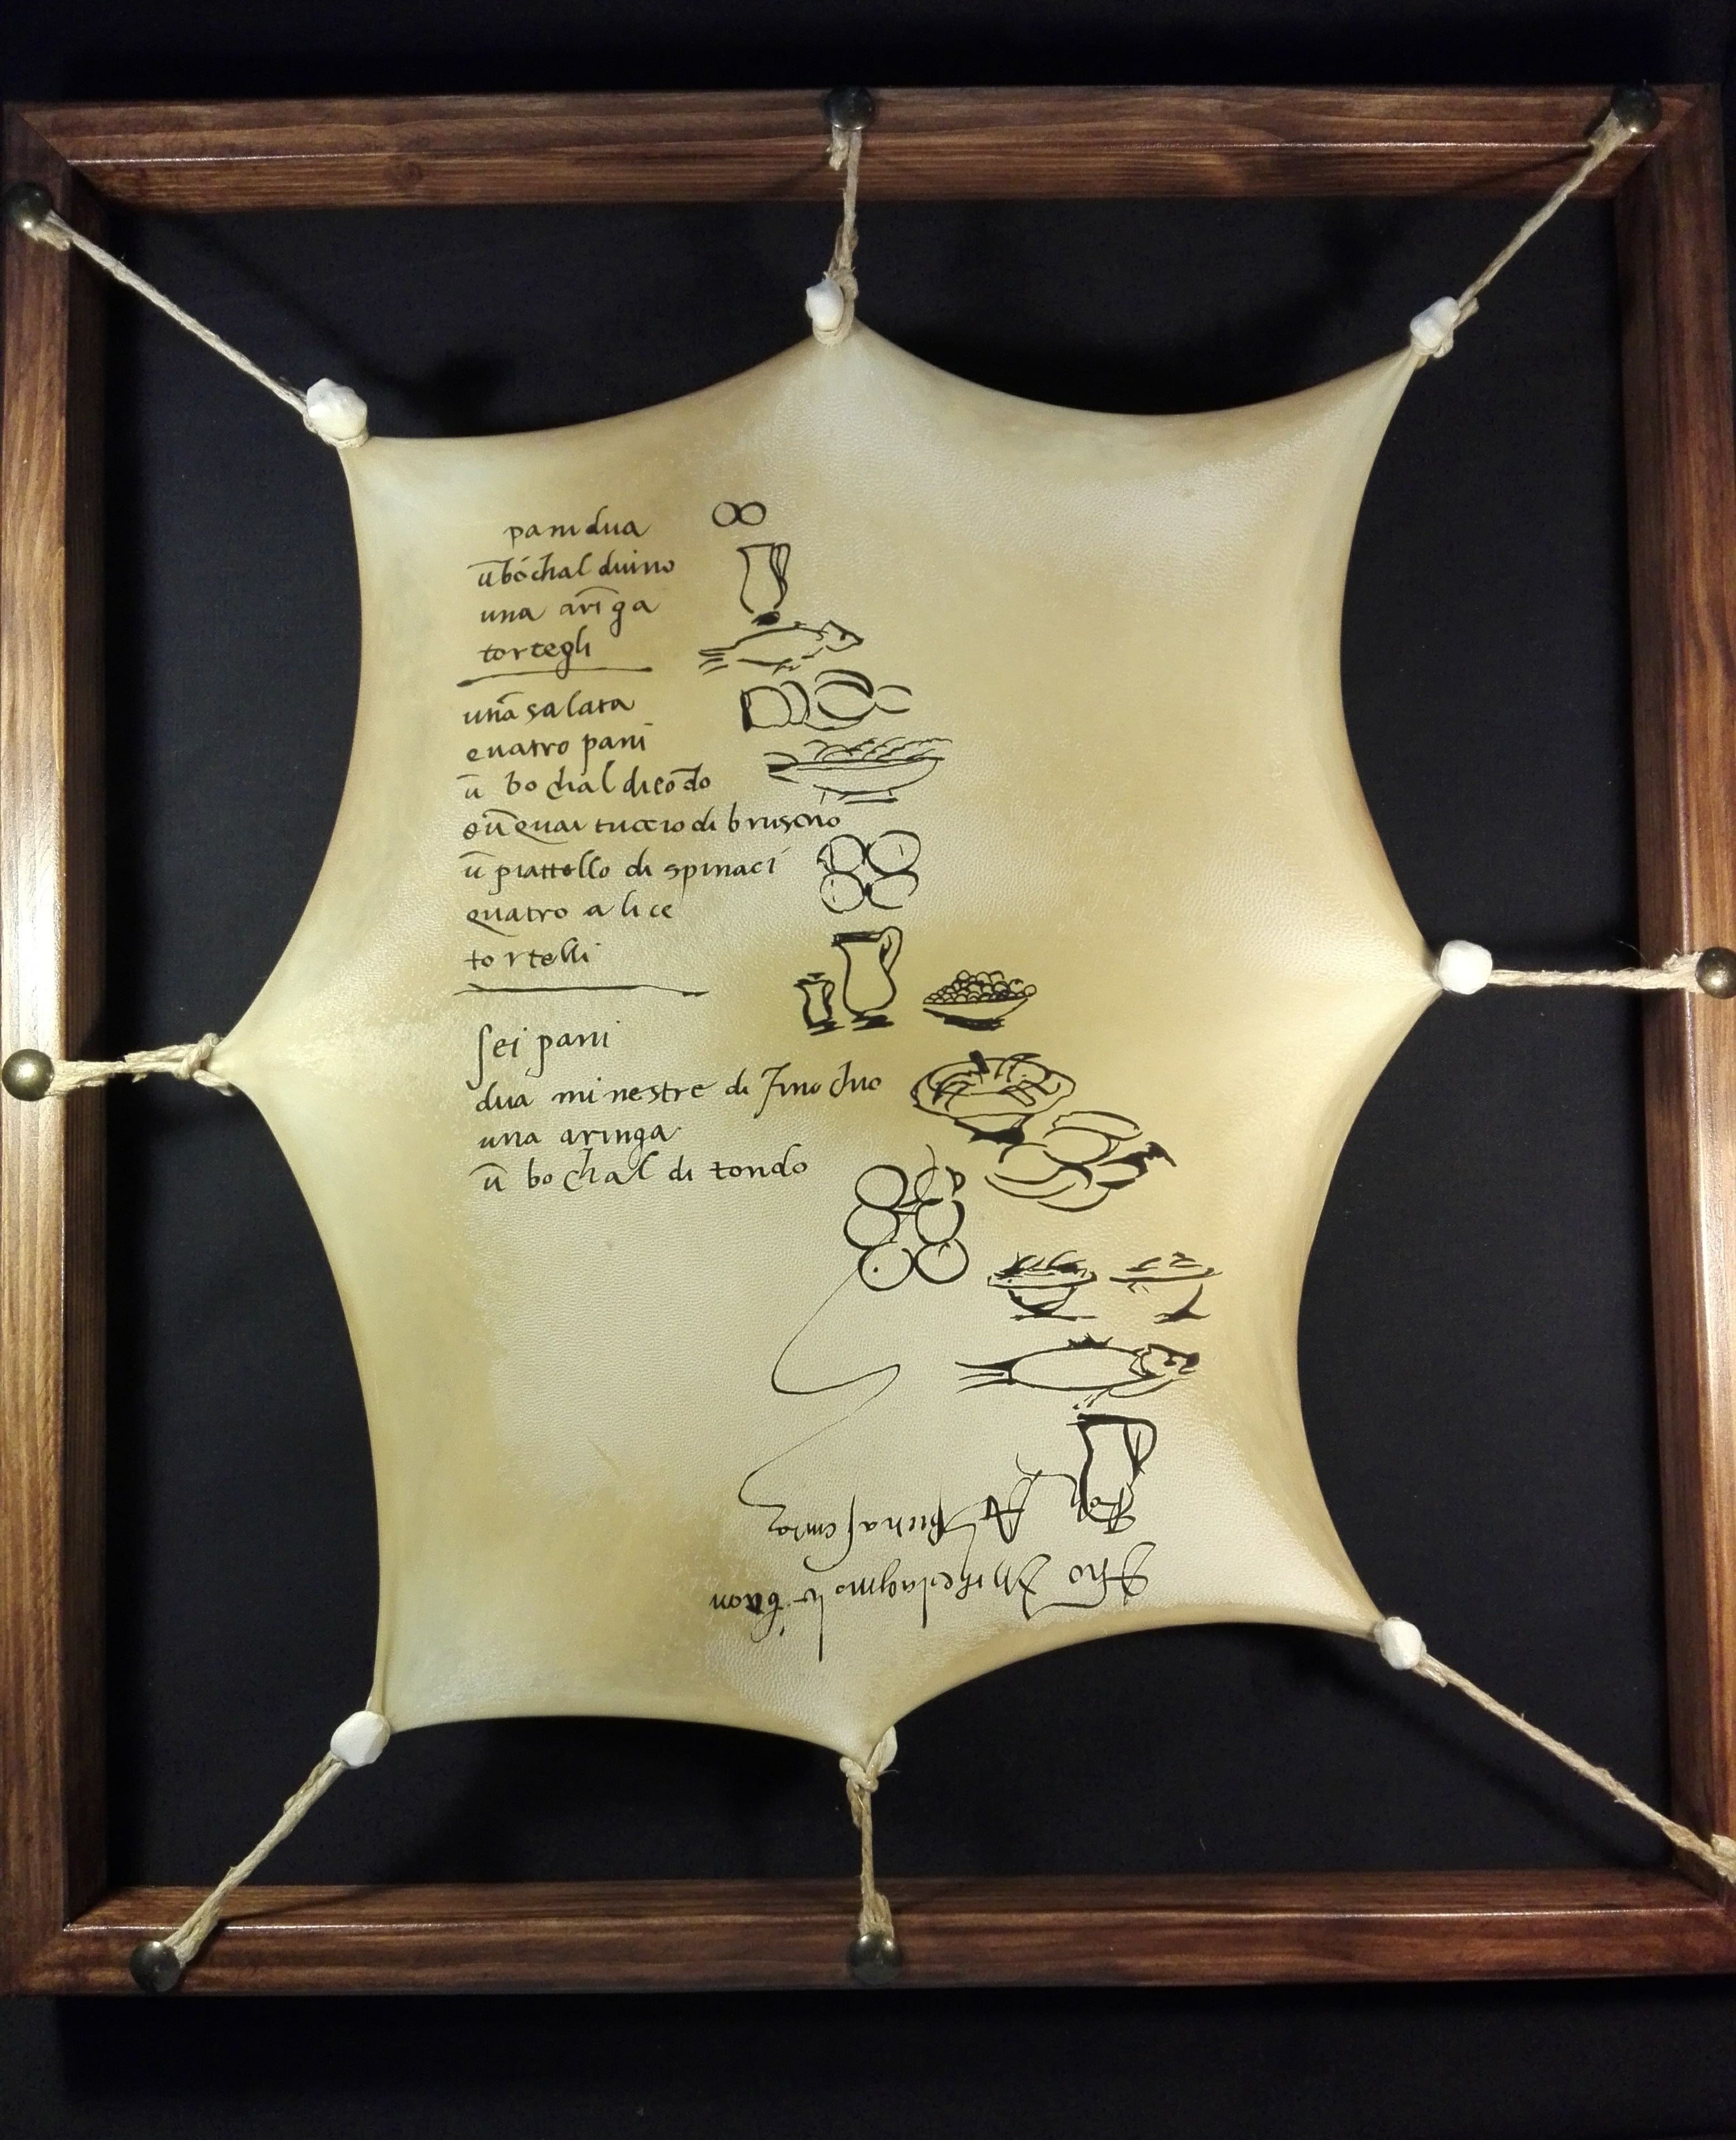 pani dua
ū bóchal duino
una arīga
tortegli
una salata
quatro pani
ū bochal di tōdo
e ū quartuccio di bruscho
ū piattello di spinaci
quatro alice
tortelli
sei pani
dua minestre di finochio
una aringa
ū bochal di tondo